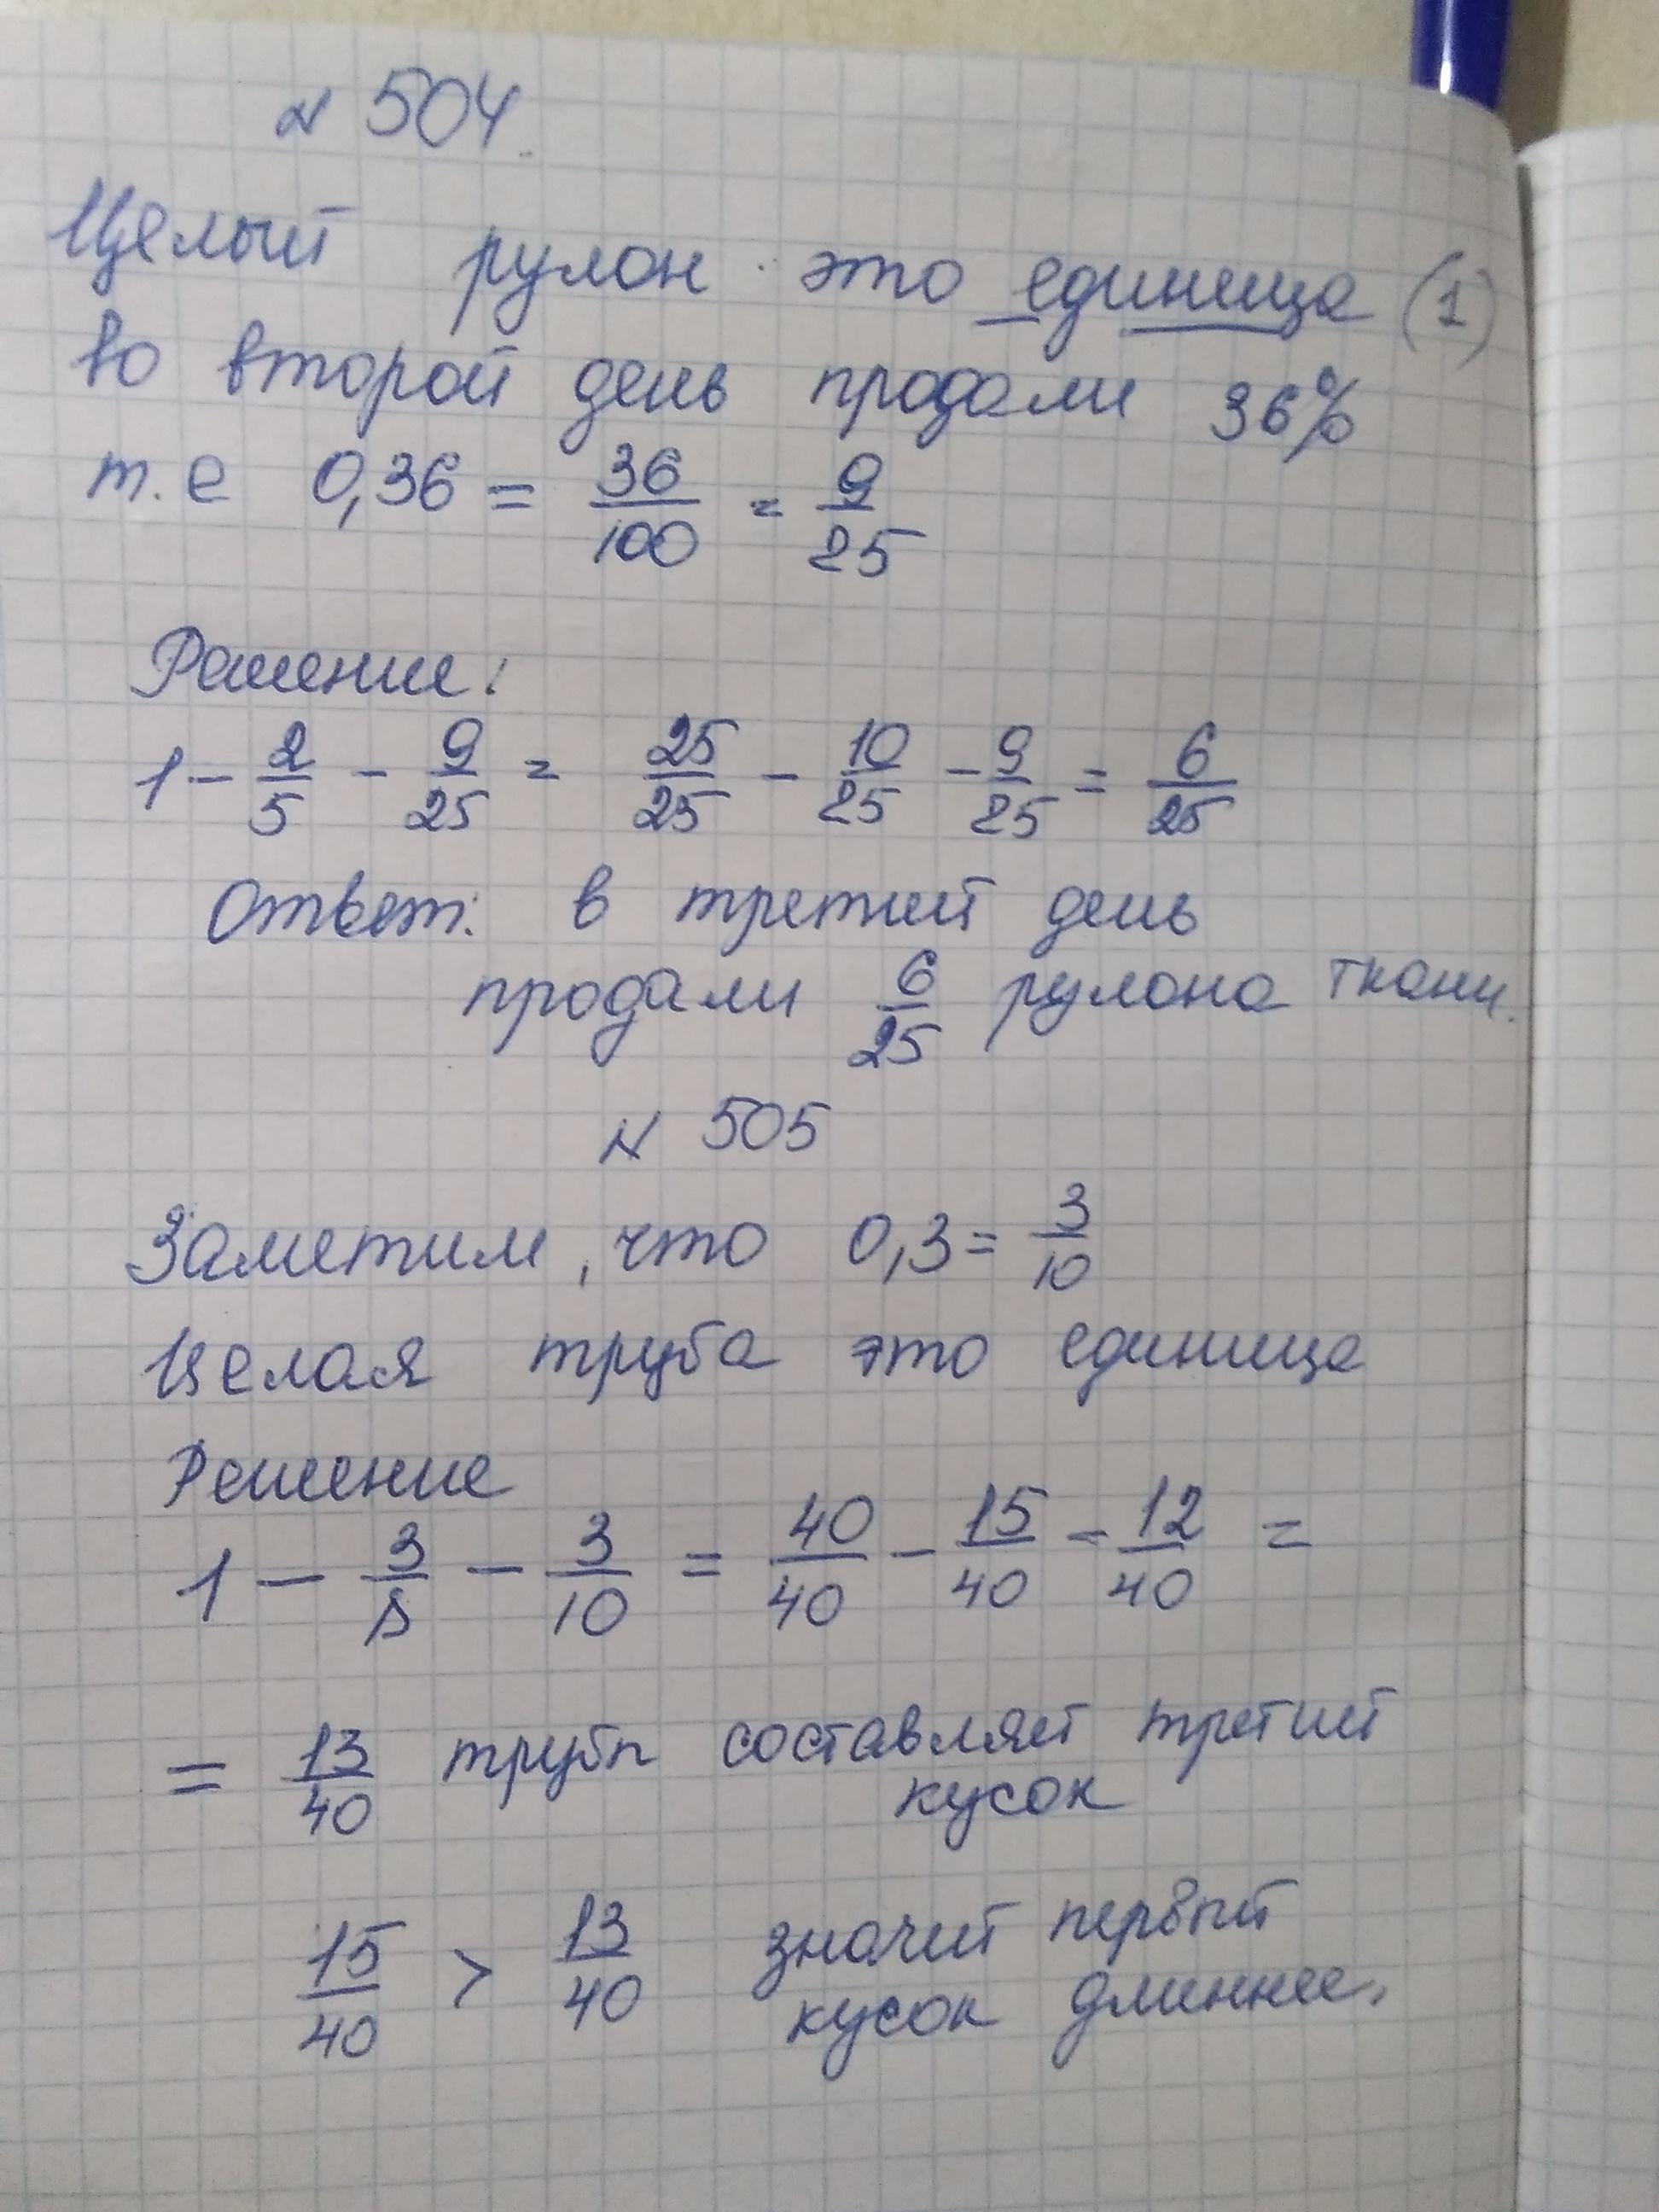 № 504.
Целый рулон это единица (1)
Во второй день продали 36%
т.е 0,36 = 36/100 = 9/25
Решение:
1 - 2/5 - 9/25 = 25/25 - 10/25 - 9/25 = 6/25
Ответ: в третий день
продали 6/25 рулона ткани.
№ 505
Заметим, что 0,3 = 3/10
Целая труба это единица
Решение
1 - 3/8 - 3/10 = 40/40 - 15/40 - 12/40 =
= 13/40 трубы составляет третий
кусок
15/40 > 13/40 значит первый
кусок длиннее.